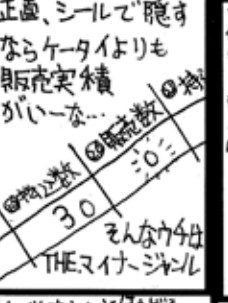 正直、シールで隠す
ならケータイよりも
販売実績
がいーな…
販売数
0
30
そんなウチは
THEマイナージャンル